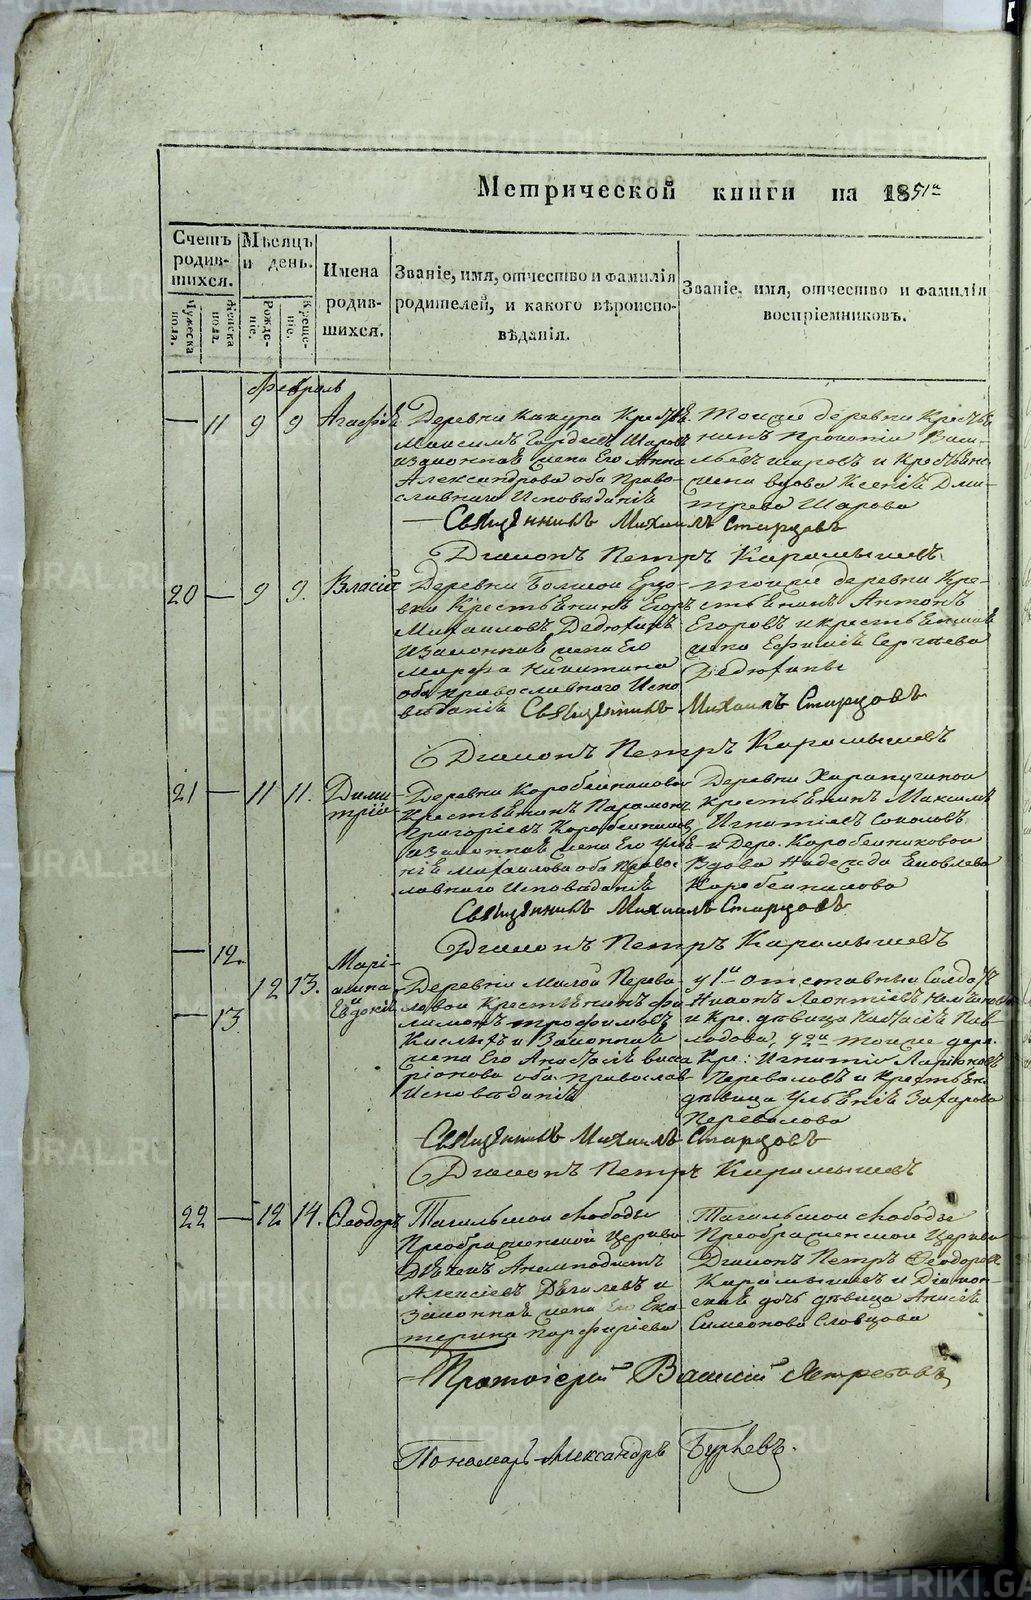 Метрической книги на 1851й
Счетъ родив-шихся.
Мѣсяцъ и день.
Имена родив-шихся.
Званіе, имя, отчество и фамилія родителей, и какого вѣроиспо-вѣданія.
Званіе, имя, отчество и фамилія воспріемниковъ.
Мужеска пола.
Женска пола.
Рожде-ніе.
Креще-ніе.
Февраль
— 11 9 9 Агафіѣ
Деревни Кресть.
Максимъ Гордеевъ Шаровъ
изаконнаѣ жена Его Анна
Александрова оба Право-
славнаго Исповѣданіѣ
Тоиже деревни Крестьѣ-
нинъ Прокопіи Васи-
льевъ шаровъ и Крестьѣнс.
жена вдова Ксеніѣ Дми-
трева Шарова
Свѣщѣнникъ Михаилъ Старцовъ
Диаконъ Петръ Карамышевъ
20 — 9 9. Власій
Деревни Болшои
Крестьѣнинъ Егоръ
Михаиловъ Дедюхинъ
изаконнаѣ жена Его
Марфа Никитина
оба православнаго Испо-
вѣданіѣ
тоиже деревни Кре-
стьѣнинъ Антонъ
Егоровъ и крестьѣнскаѣ
жена Ефиміѣ Сергѣева
Дедюхины
Свѣщѣнникъ Михаилъ Старцовъ
Диаконъ Петръ Карамышевъ
21 — 11 11. Дими-
трій
Деревни Коробеиниковои
Крестьѣнинъ Парамонъ
Григоріевъ Коробеиниковъ
изаконнаѣ жена Его Улѣ-
ніѣ михаилова оба Право-
лавнаго Исповѣданіѣ
Деревни Харапугинои
Крестьѣнинъ Максимъ
Игнатіевъ Соколовъ
и Дерев. Коробеиниковои
Вдова Надежда Еиовлева
Коробеиникова
Свѣщѣнникъ Михаилъ Старцовъ
Диаконъ Петръ Карамышевъ
— 12.
12 13.
— 13
Марі-
амна
Евдокіѣ
Деревни малои Перева-
ловои Крестьѣнинъ Фи-
лимонъ трофимовъ
и Законнаѣ
жена Его Анастасіѣ висса-
ріонова оба православ-
Исповѣданіѣ
у 1й отставныи Солдатъ
Леонтіевъ
и Кре. дѣвица Настасіѣ Пав-
лодова, у 2й тоиже дере.
Кре: Игнатіи Ларіоновъ
Переваловъ и Крестьѣн.
дѣвица Ульѣніѣ Захарова
Перевалова
Свѣщѣнникъ Михаилъ Старцовъ
Диаконъ Петръ Карамышевъ
22 — 12 14. Феодоръ
Тагильскои слободы
Преображенской Церкви
Дьѣчекъ Анемподистъ
Алексіевъ Дѣгилевъ и
Законнаѣ жена Его Ека-
терина Порфиріева
Тагильскои слободы
Преображенскои Церкви
Диаконъ Петръ Феодоровъ
Карамышевъ и Діакон-
скаѣ дочь дѣвица Анисіѣ
Симеонова Словцова
Протоіерей Василій Ястребовъ
Пономарь Александръ Бурхевъ.
METRIKI.GASO-URAL.RU